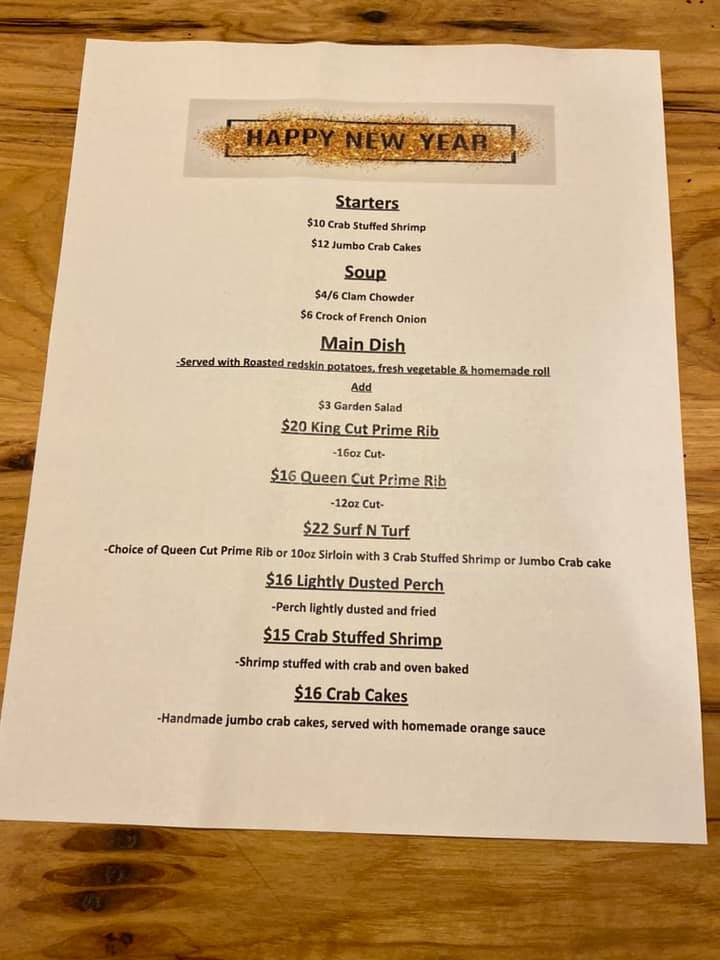 HAPPY NEW YEAR
Starters
$10 Crab Stuffed Shrimp
$12 Jumbo Crab Cakes
Soup
$4/6 Clam Chowder
$6 Crock of French Onion
Main Dish
-Served with Roasted redskin potatoes, fresh vegetable & homemade roll
Add
$3 Garden Salad
$20 King Cut Prime Rib
-16oz Cut-
$16 Queen Cut Prime Rib
-12oz Cut-
$22 Surf N Turf
-Choice of Queen Cut Prime Rib or 10oz Sirloin with 3 Crab Stuffed Shrimp or Jumbo Crab cake
$16 Lightly Dusted Perch
-Perch lightly dusted and fried
$15 Crab Stuffed Shrimp
-Shrimp stuffed with crab and oven baked
$16 Crab Cakes
-Handmade jumbo crab cakes, served with homemade orange sauce